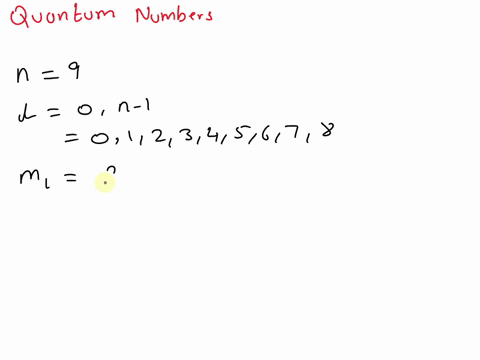 Quantum Numbers
n = 9
l = 0, n-1
= 0, 1, 2, 3, 4, 5, 6, 7, 8
m_l =